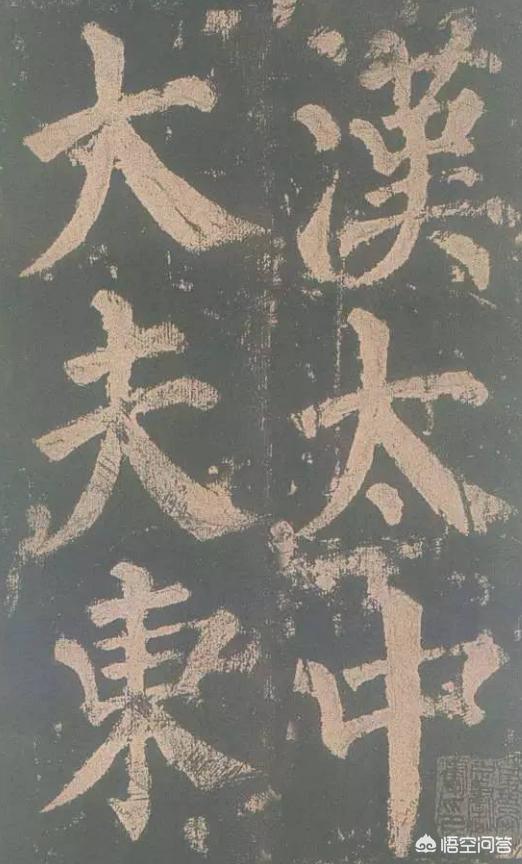 漢太中
大夫東
悟空问答